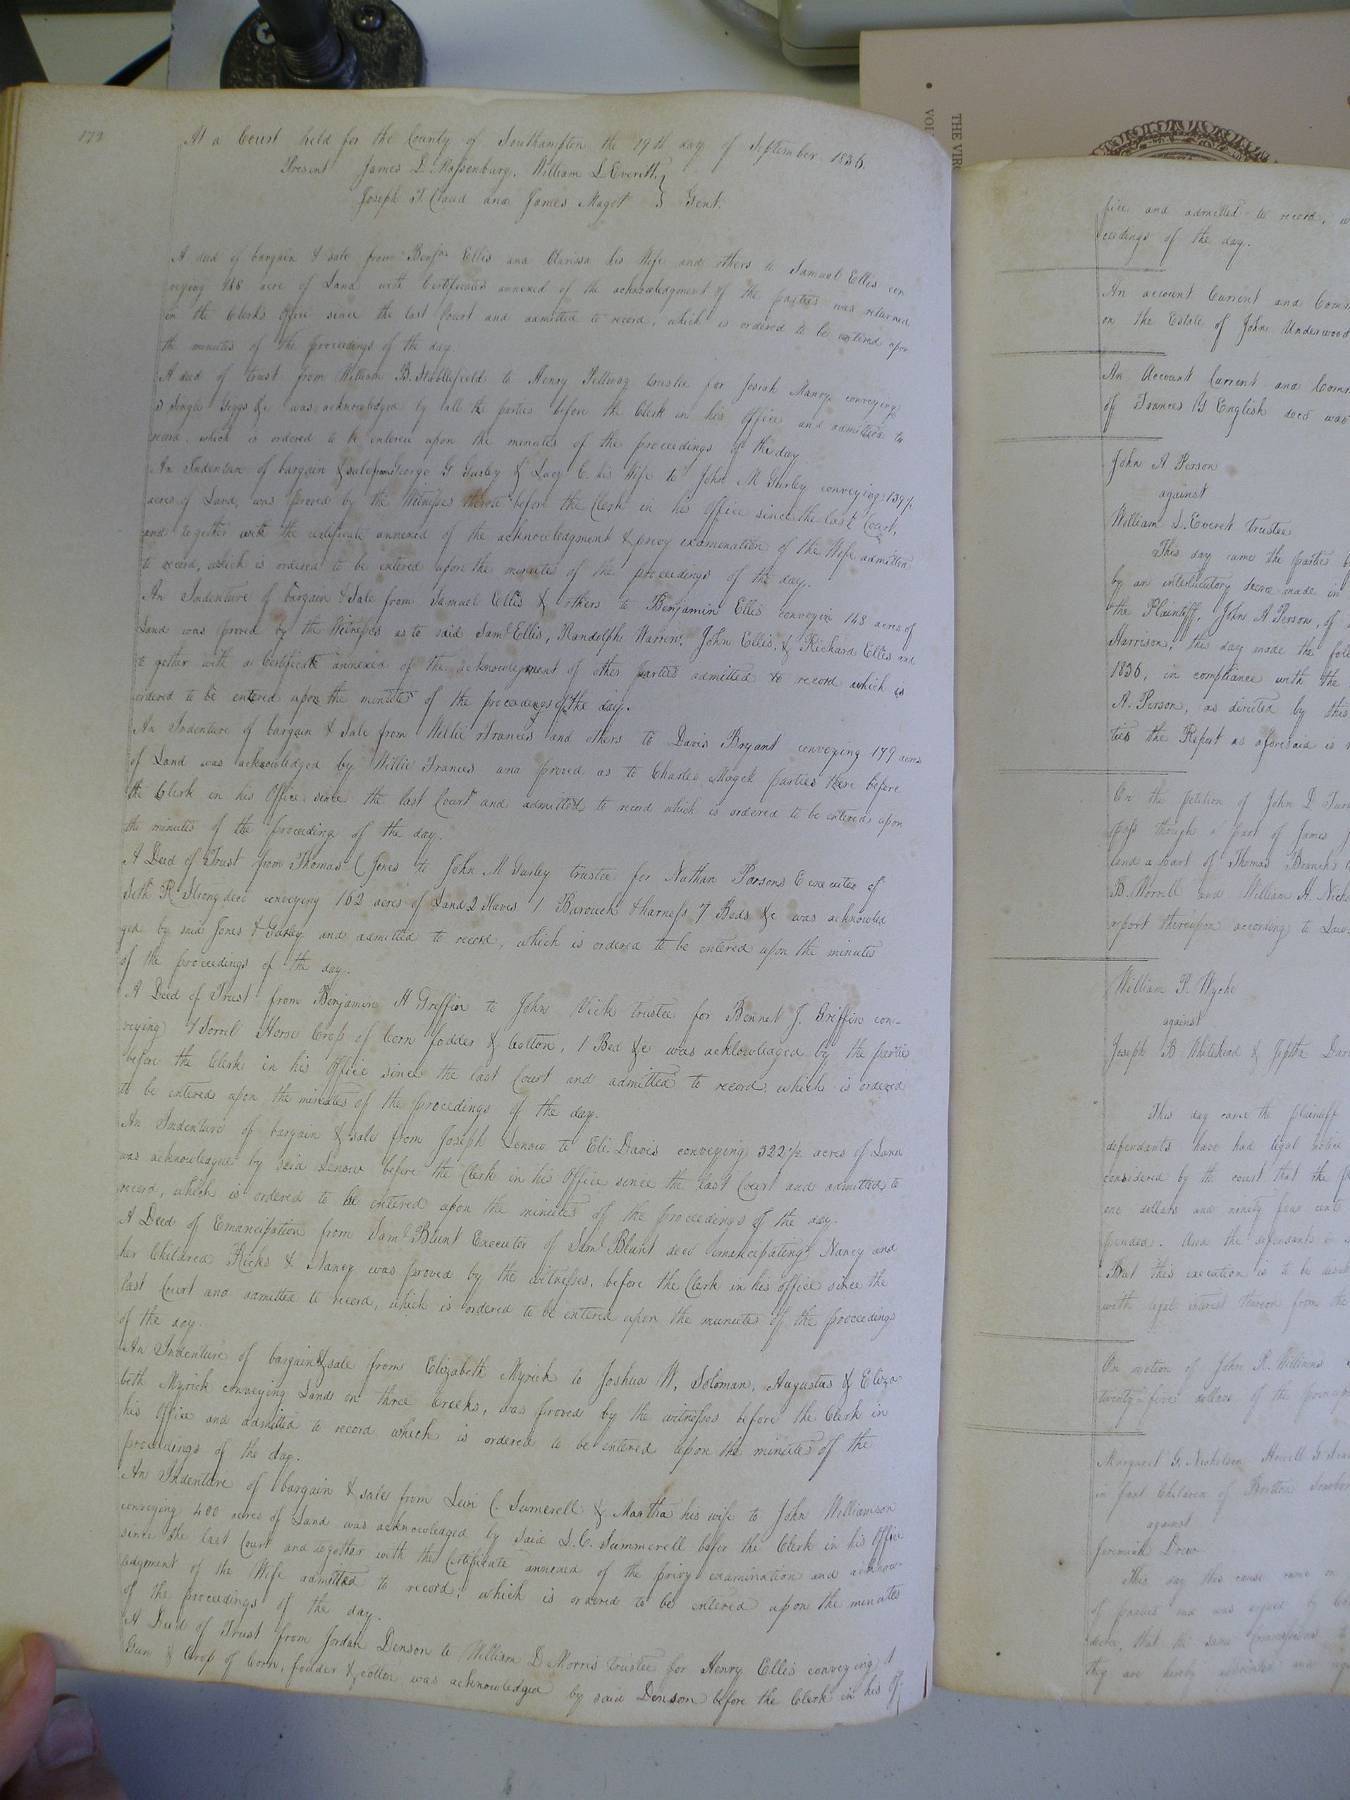 173
At a Court held for the County of Southampton the 19th day of September 1836.
Present James L. Massenburg, William L Everett,
Joseph T. Claud and James Maget } Gent.
A deed of bargain & sale from Benjn Ellis and Clarissa his Wife and others to Samuel Ellis con
veying 148 acre of Land with Certificates annexed of the acknowledgment of the parties was returned
in the Clerks Office since the last Court and admitted to record, which is ordered to be entered upon
the minutes of the proceedings of the day.
A deed of trust from William B. Stubblefield to Henry Pettway trustee for Josiah Manry conveying
a Single Gigg &c was acknowledged by all the parties before the Clerk in his Office and admitted to
record which is ordered to be entered upon the minutes of the proceedings of the day
An Indenture of bargain & sale from George G Gurley & Lucy C. his Wife to John M Gurley conveying
acres of Land, was proved by the Witnesses thereto before the Clerk in his Office since the last Court,
and together with the certificate annexed of the acknowledgment & privy examination of the Wife admitted
to record, which is ordered to be entered upon the minutes of the proceedings of the day.
An Indenture of bargain & Sale from Samuel Ellis & others to Benjamin Ellis conveyin 148 acres of
Land was proved by the Witnesses as to said Saml Ellis, Randolph Warren, John Ellis, & Richard Ellis and
to gether with a Certificate annexed of the acknowlegment of other parties admitted to record which is
ordered to be entered upon the minutes of the proceedings of the day.
An Indenture of bargain & Sale from Willie Frances and others to Davis Bryant conveying 179 acres
of Land was acknowledged by Willie Frances and proved as to Charles Maget parties there before
the Clerk in his Office since the last Court and admitted to record which is ordered to be entered upon
the minutes of the proceeding of the day.
A Deed of Trust from Thomas C Jones to John M Gurley trustee for Nathan Parsons Executor of
Seth R Strong decd conveying 162 acres of Land 2 Slaves 1 Barouch & harness 7 Beds &c was acknowled
ged by said Jones & Gurley and admitted to record, which is ordered to be entered upon the minutes
of the proceedings of the day.
A Deed of Trust from Benjamin H Griffin to John Vick trustee for Bennet J. Griffin con-
veying 1 Sorrel Horse Crop of Corn fodder & Cotton, 1 Bed &c was acklowledged by the partie
before the Clerk in his Office since the last Court and admitted to record which is ordered
to be entered upon the minutes of the procedings of the day.
An Indenture of bargain & sale from Joseph Lenow to Eli Davis conveying 322 1/2 acres of Land
was acknowledged by said Lenow before the Clerk in his Office since the last Court and admitted to
record, which is ordered to be entered upon the minutes of the proceedings of the day.
A Deed of Emancipation from Saml Blunt Executor of Saml Blunt decd emancipating Nancy and
her Children Ricks & Nancy was proved by the witnesses, before the Clerk in his office since the
last Court and admitted to record, which is ordered to be entered upon the minutes of the proceedings
of the day.
An Indenture of bargain & sale from Elizabeth Myrick to Joshua W. Soloman, Augustus & Eliza
beth Myrick conveying Lands on three Creeks, was proved by the witnesses before the Clerk in
his Office and admitted to record which is ordered to be entered upon the minutes of the
proceedings of the day.
An Indenture of bargain & sale from Levi C. Sumerell & Maatha his wife to John Williamson
conveying 400 acres of Land was acknowledged by said L.C. Summerell before the Clerk in his Office
since the last Court and together with the Certificate annexed of the privy examination and acknow-
ledgment of the Wife admitted to record, which is ordered to be entered upon the minutes
of the proceedings of the day.
A Deed of Trust from Jordan Denson to William D Morris trustee for Henry Ellis conveying 1
Gun & Crop of Corn, fodder & cotton was acknowledged by said Denson before the Clerk in his Of-
fice and admitted to record,
ceedings of the day.
An account Current and Comm
on the Estate of John Underwood
An Account Current and Comm
of Frances G English decd was
John A Person
against
William L. Everett trustee
This day came the parties
by an interlocutory decree made in
the Plaintiff, John A Person, of
Harrison, this day made the foll
1836, in compliance with the
A. Person, as directed by this
ties the Report as aforesaid is
On the petition of John D
pass though a part of James
land a part of Thomas Branch's
B. Worrell and William H. Nich
report thereupon according to Law
William P. Wyche
against
Joseph B Whitehead & Jeptha Dar
This day came the plaintiff
defendants have had legal notice
considered by the court that the
one dollars and ninety four cents
pended. And the defendants in
that this execution is to be
with legal interest thereon from the
On motion of John R. Williams
twenty-five dollars of the
Margaret G. Nicholson Howell G
in fact Children of Britton
against
Jeremiah Drew
This day this cause came on
of parties and was argued by
decree, that the same
they are hereby
THE VIR
VOL